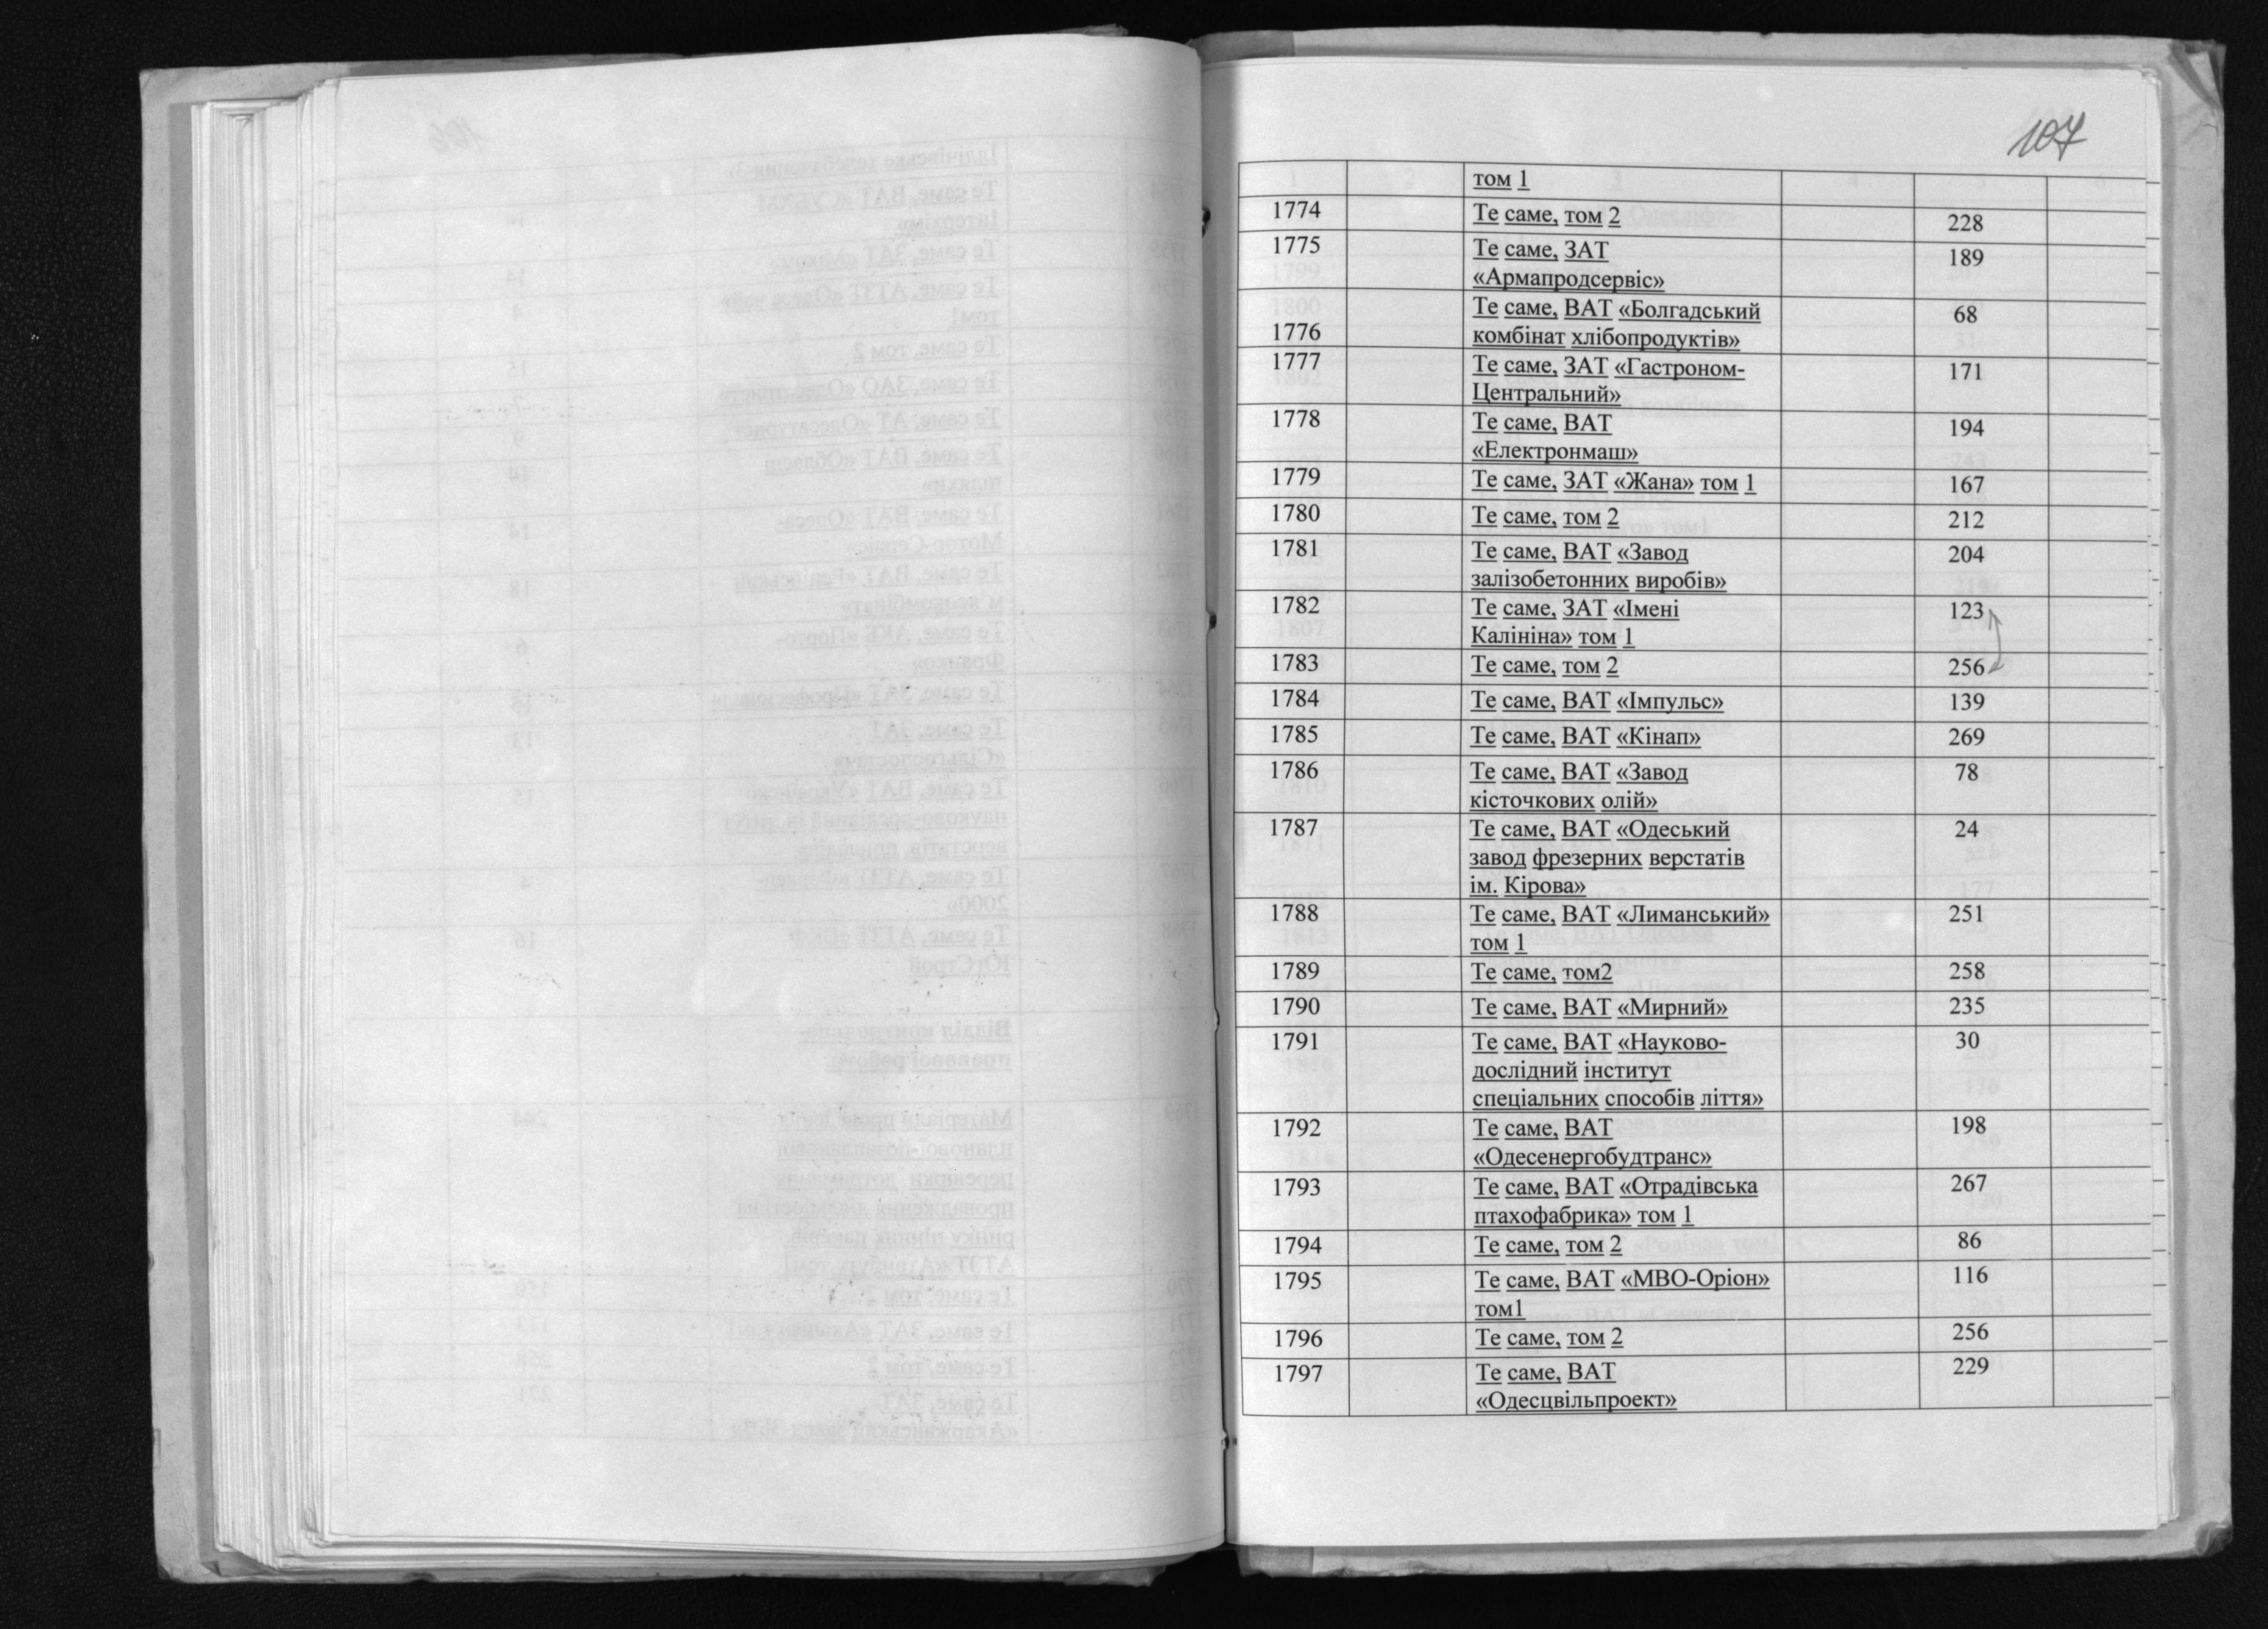 107
том 1
1774 Те саме, том 2 228
1775 Те саме, ЗАТ 189
«Армапродсервіс»
Те саме, ВАТ «Болгадський 68
1776 комбінат хлібопродуктів»
1777 Те саме, ЗАТ «Гастроном- 171
Центральний»
1778 Те саме, ВАТ 194
«Електронмаш»
1779 Те саме, ЗАТ «Жана» том 1 167
1780 Те саме, том 2 212
1781 Те саме, ВАТ «Завод 204
залізобетонних виробів»
1782 Те саме, ЗАТ «Імені 123
Калініна» том 1
1783 Те саме, том 2 256
1784 Те саме, ВАТ «Імпульс» 139
1785 Те саме, ВАТ «Кінап» 269
1786 Те саме, ВАТ «Завод 78
кісточкових олій»
1787 Те саме, ВАТ «Одеський 24
завод фрезерних верстатів
ім. Кірова»
1788 Те саме, ВАТ «Лиманський» 251
том 1
1789 Те саме, том2 258
1790 Те саме, ВАТ «Мирний» 235
1791 Те саме, ВАТ «Науково- 30
дослідний інститут
спеціальних способів лiття»
1792 Те саме, ВАТ 198
«Одесенергобудтранс»
1793 Те саме, ВАТ «Отрадівська 267
птахофабрика» том 1
1794 Те саме, том 2 86
1795 Те саме, ВАТ «МВО-Оріон» 116
том1
1796 Те саме, том 2 256
1797 Те саме, ВАТ 229
«Одесцвільпроект»